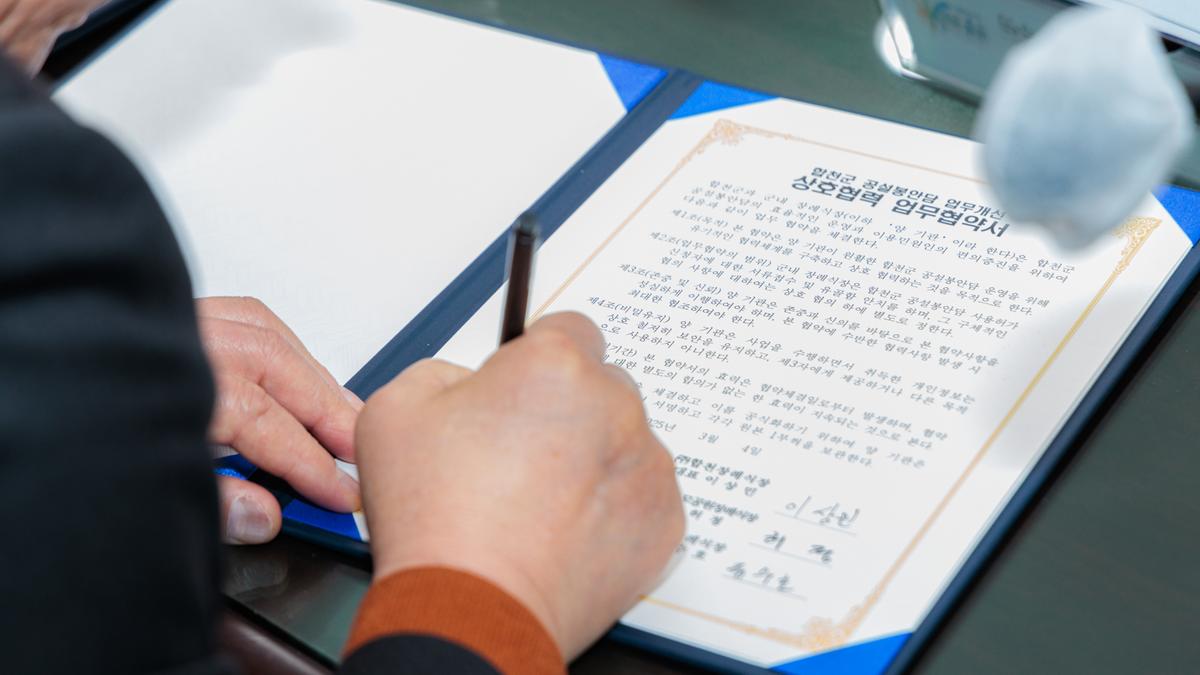 합천군 공설봉안담 업무개선
상호협력 업무협약서
합천군과 군내 장례식장(이하 '양 기관' 이라 한다)은 합천군
공설봉안담의 효율적인 운영과 이용민원인의 편의증진을 위하여
다음과 같이 업무 협약을 체결한다.
제1조(목적) 본 협약은 양 기관이 원활한 합천군 공설봉안담 운영을 위해
유기적인 협력체계를 구축하고 상호 협력하는 것을 목적으로 한다.
제2조(업무협약의 범위) 군내 장례식장은 합천군 공설봉안담 사용허가
신청자에 대한 서류접수 및 유골함 안치를 하며, 그 구체적인
협의 사항에 대하여는 상호 협의 하에 별도로 정한다.
제3조(존중 및 신뢰) 양 기관은 존중과 신의를 바탕으로 본 협약사항을
성실하게 이행하여야 하며, 본 협약에 수반한 협력사항 발생 시
최대한 협조하여야 한다.
제4조(비밀유지) 양 기관은 사업을 수행하면서 취득한 개인정보는
상호 철저히 보안을 유지하고, 제3자에게 제공하거나 다른 목적
으로 사용하지 아니한다.
기간) 본 협약서의 효력은 협약체결일로부터 발생하며, 협약
대한 별도의 합의가 없는 한 효력이 지속되는 것으로 본다.
체결하고 이를 공식화하기 위하여 양 기관은
서명하고 각각 원본 1부씩을 보관한다.
025년 3월 4일
(주)합천장례식장
대표 이 상 민 이 상민
허 정 허 정